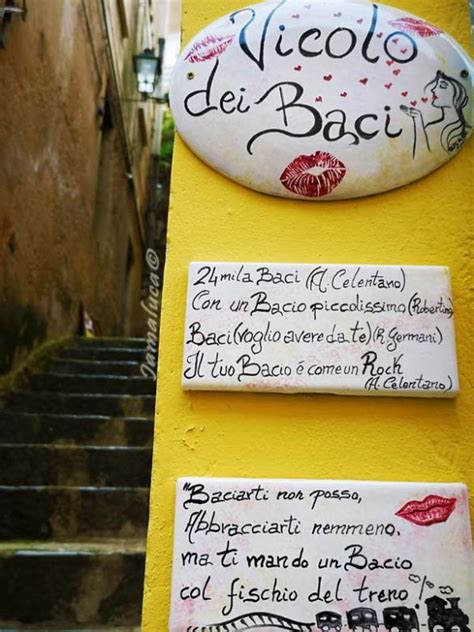 Vicolo
dei Baci
24mila Baci (A. Celentano)
Con un Bacio piccolissimo (Robertino)
Baci (voglio avere da te) (R. Germani)
Il tuo Bacio é come un Rock
(A. Celentano)
"Baciarti non posso,
Abbracciarti nemmeno,
ma ti mando un Bacio
col fischio del treno!
Jamaluca©